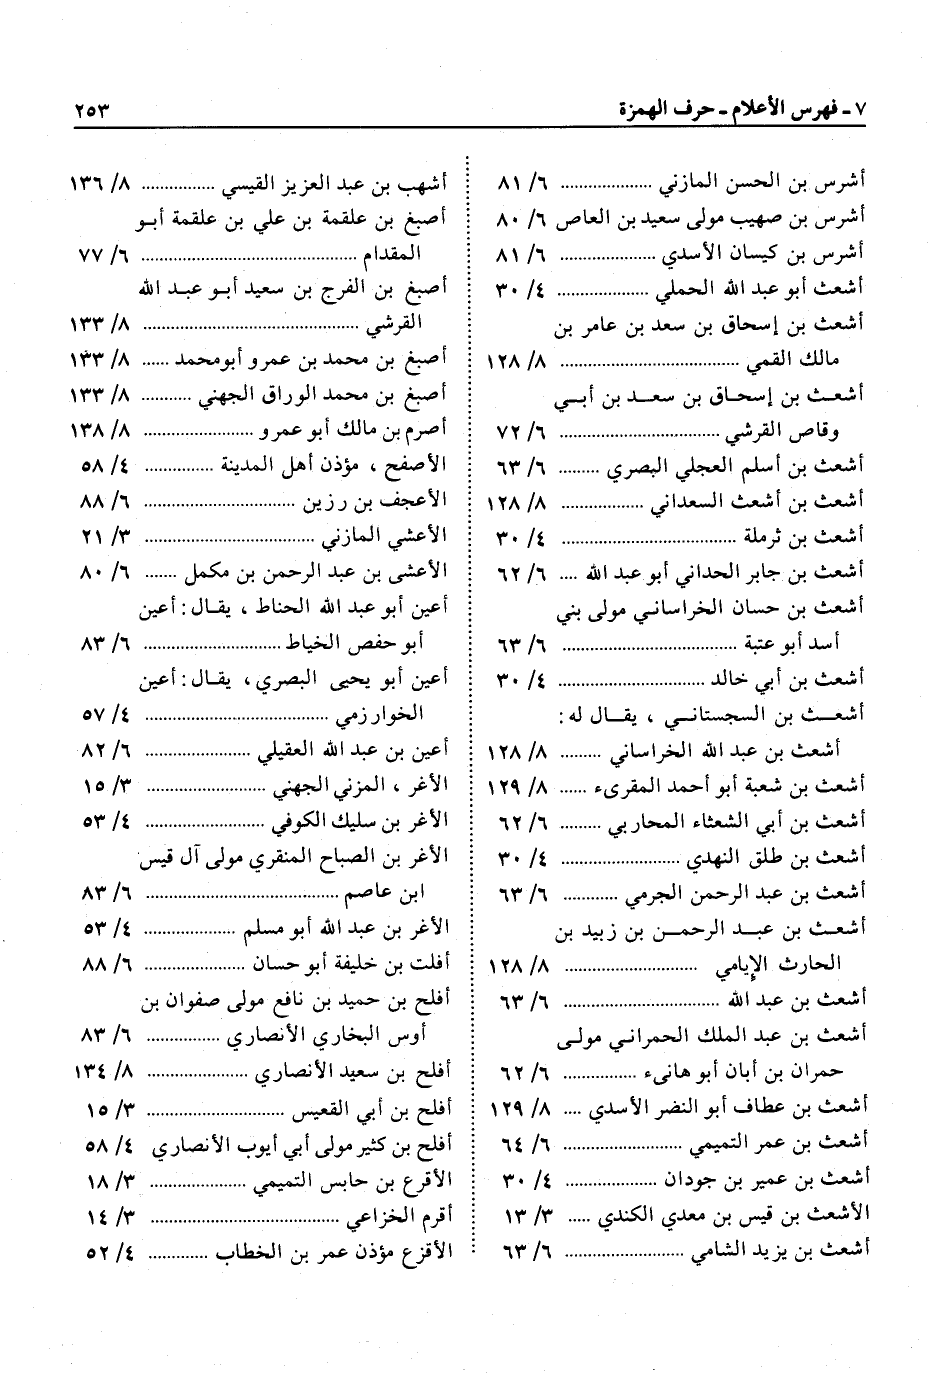 ٧ ـ فهرس الأعلام ـ حرف الهمزة ٢٥٣
أشرس بن الحسن المازني .................... ٦/ ٨١
أشرس بن صهيب مولى سعيد بن العاص ٦/ ٨٠
أشرس بن كيسان الأسدي .................... ٦/ ٨١
أشعث أبو عبد الله الحملي .................... ٤/ ٣٠
أشعث بن إسحاق بن سعد بن عامر بن
مالك القمي ...................................... ٨/ ١٢٨
أشعـث بن إسحـاق بن سعـد بن أبـي
وقاص القرشي .................................. ٦/ ٧٢
أشعث بن أسلم العجلي البصري ......... ٦/ ٦٣
أشعث بن أشعث السعداني .................. ٨/ ١٢٨
أشعث بن ثرملة ..................................... ٤/ ٣٠
أشعث بن جابر الحداني أبو عبد الله .... ٦/ ٦٢
أشعث بن حسان الخراساني مولى بني
أسد أبو عتبة ..................................... ٦/ ٦٣
أشعث بن أبي خالد ............................... ٤/ ٣٠
أشعـث بن السجستانـي ، يقـال له :
أشعث بن عبد الله الخراساني ......... ٨/ ١٢٨
أشعث بن شعبة أبو أحمد المقرىء ...... ٨/ ١٢٩
أشعث بن أبي الشعثاء المحاربي ......... ٦/ ٦٢
أشعث بن طلق النهدي ......................... ٤/ ٣٠
أشعث بن عبد الرحمن الجرمي ............ ٦/ ٦٣
أشعـث بن عبـد الرحمـن بن زبيد بن
الحارث الإيامي ............................ ٨/ ١٢٨
أشعث بن عبد الله ................................. ٦/ ٦٣
أشعث بن عبد الملك الحمراني مولـى
حمران بن أبان أبو هانىء ................ ٦/ ٦٢
أشعث بن عطاف أبو النضر الأسدي .... ٨/ ١٢٩
أشعث بن عمر التميمي ......................... ٦/ ٦٤
أشعث بن عمير بن جودان .................... ٤/ ٣٠
الأشعث بن قيس بن معدي الكندي ..... ٣/ ١٣
أشعث بن يزيد الشامي ......................... ٦/ ٦٣
أشهب بن عبد العزيز القيسي ................ ٨/ ١٣٦
أصبغ بن علقمة بن علي بن علقمة أبـو
المقدام .............................................. ٦/ ٧٧
أصبغ بن الفرج بن سعيد أبـو عبـد الله
القرشي .............................................. ٨/ ١٣٣
أصبغ بن محمد بن عمرو أبومحمد ...... ٨/ ١٣٣
أصبغ بن محمد الوراق الجهني ........... ٨/ ١٣٣
أصرم بن مالك أبو عمرو ....................... ٨/ ١٣٨
الأصفح ، مؤذن أهل المدينة ............... ٤/ ٥٨
الأعجف بن رزين ................................ ٦/ ٨٨
الأعشي المازني .................................... ٣/ ٢١
الأعشى بن عبد الرحمن بن مكمل ....... ٦/ ٨٠
أعين أبو عبد الله الحناط ، يقـال : أعين
أبو حفص الخياط ............................. ٦/ ٨٣
أعين أبو يحيى البصري ، يقـال : أعين
الخوارزمي ....................................... ٤/ ٥٧
أعين بن عبد الله العقيلي ....................... ٦/ ٨٢
الأغر ، المزني الجهني ......................... ٣/ ١٥
الأغر بن سليك الكوفي ......................... ٤/ ٥٣
الأغر بن الصباح المنقري مولى آل قيس
ابن عاصم ......................................... ٦/ ٨٣
الأغر بن عبد الله أبو مسلم .................... ٤/ ٥٣
أفلت بن خليفة أبو حسان ..................... ٦/ ٨٨
أفلح بن حميد بن نافع مولى صفوان بن
أوس البخاري الأنصاري ................ ٦/ ٨٣
أفلح بن سعيد الأنصاري ..................... ٨/ ١٣٤
أفلح بن أبي القعيس ............................. ٣/ ١٥
أفلح بن كثير مولى أبي أيوب الأنصاري ٤/ ٥٨
الأقرع بن حابس التميمي ..................... ٣/ ١٨
أقرم الخزاعي ........................................ ٣/ ١٤
الأقرع مؤذن عمر بن الخطاب ............. ٤/ ٥٢